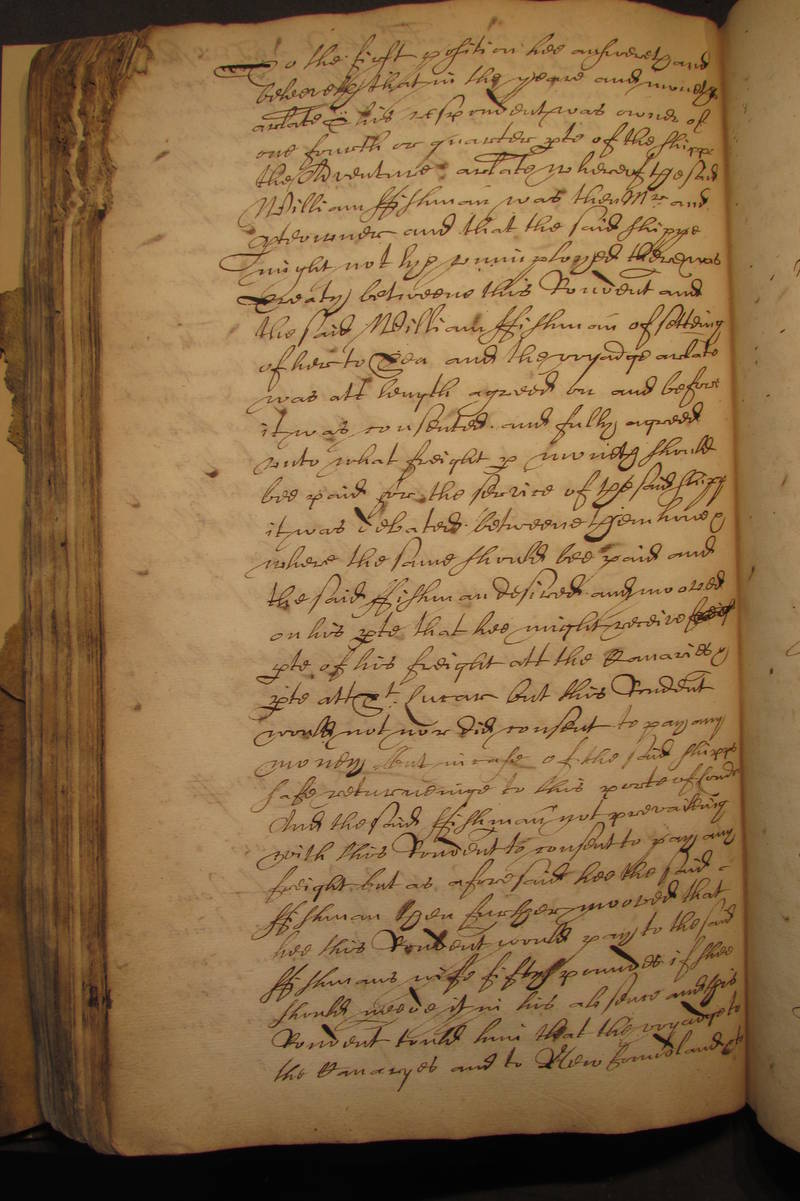 To the first position hee answereth and
beleeveth that in the yeare and moneths
arlate this respondent was owner of
one fourth or quarter pte of the shipp
the Adventure arlate whereof the said
William ffishman was then Mr and
pteowner and that the said shippe
might not lye unimployed there was
treaty betweene this Rondent and
the said William ffishman of setting
of her to Sea and the voyadge arlate
was att length agreed on and before
it was consented and fully agreed
unto what freight p moneth should
bee paid for the service of the said shipp
it was debated betweene them
where the same should bee paid and
the said ffishman desired and mooved
on his pte that hee might receive
pte of his freight att the Canaries
pte att St Lucar but this Rondent
would not nor did consent to pay any
money but in case of the said shipps
safe returneinge to this porte of London
And the said ffishman not prevailing
with this Rondent to consent to pay any
freight but as aforesaid hee the said
ffishman then further mooved that
hee this Rondent would pay to the said
ffishmans wife fifty pounds if shee
should neede it in his absence and this
Rondent tould him that the voyadge to
the Canaryes and to New foundland